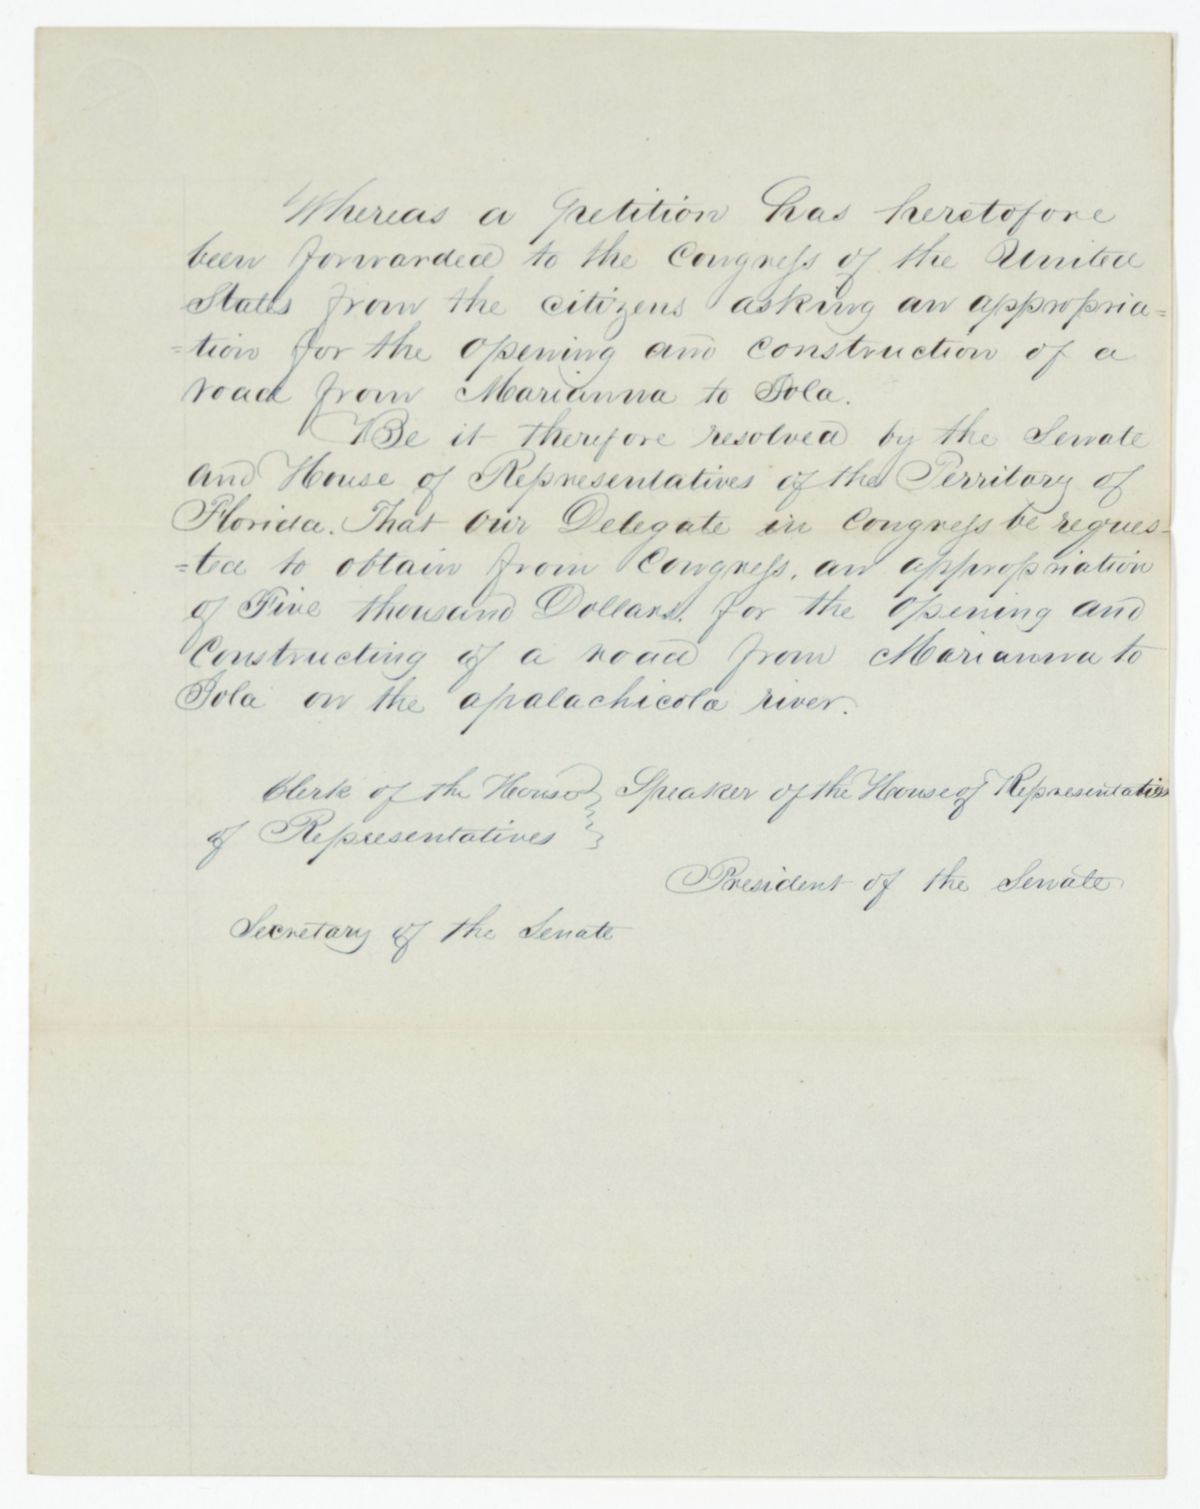 Whereas a petition has heretofore
been forwarded to the Congress of the United
States from the citizens asking an appropria=
=tion for the opening and construction of a
road from Marianna to Iola.
Be it therefore resolved by the Senate
and House of Representatives of the Territory of
Florida. That our Delegate in Congress be reques-
=ted to obtain from Congress, an appropriation
of Five thousand Dollars, for the opening and
Constructing of a road from Marianna to
Iola on the apalachicola river.
Clerk of the House } Speaker of the House of Representatives
of Representatives
President of the Senate
Secretary of the Senate